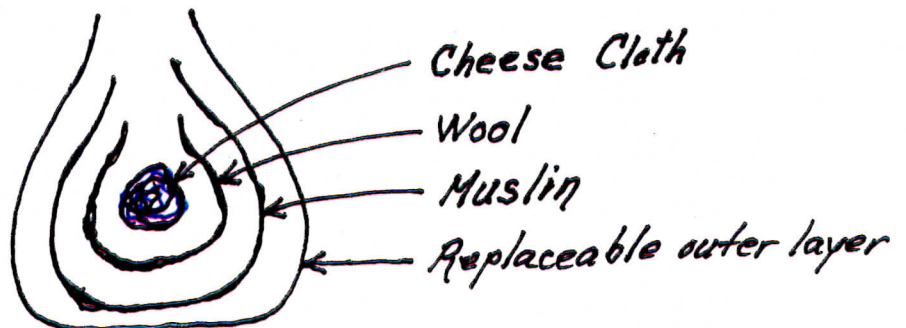 Cheese Cloth
Wool
Muslin
Replaceable outer layer